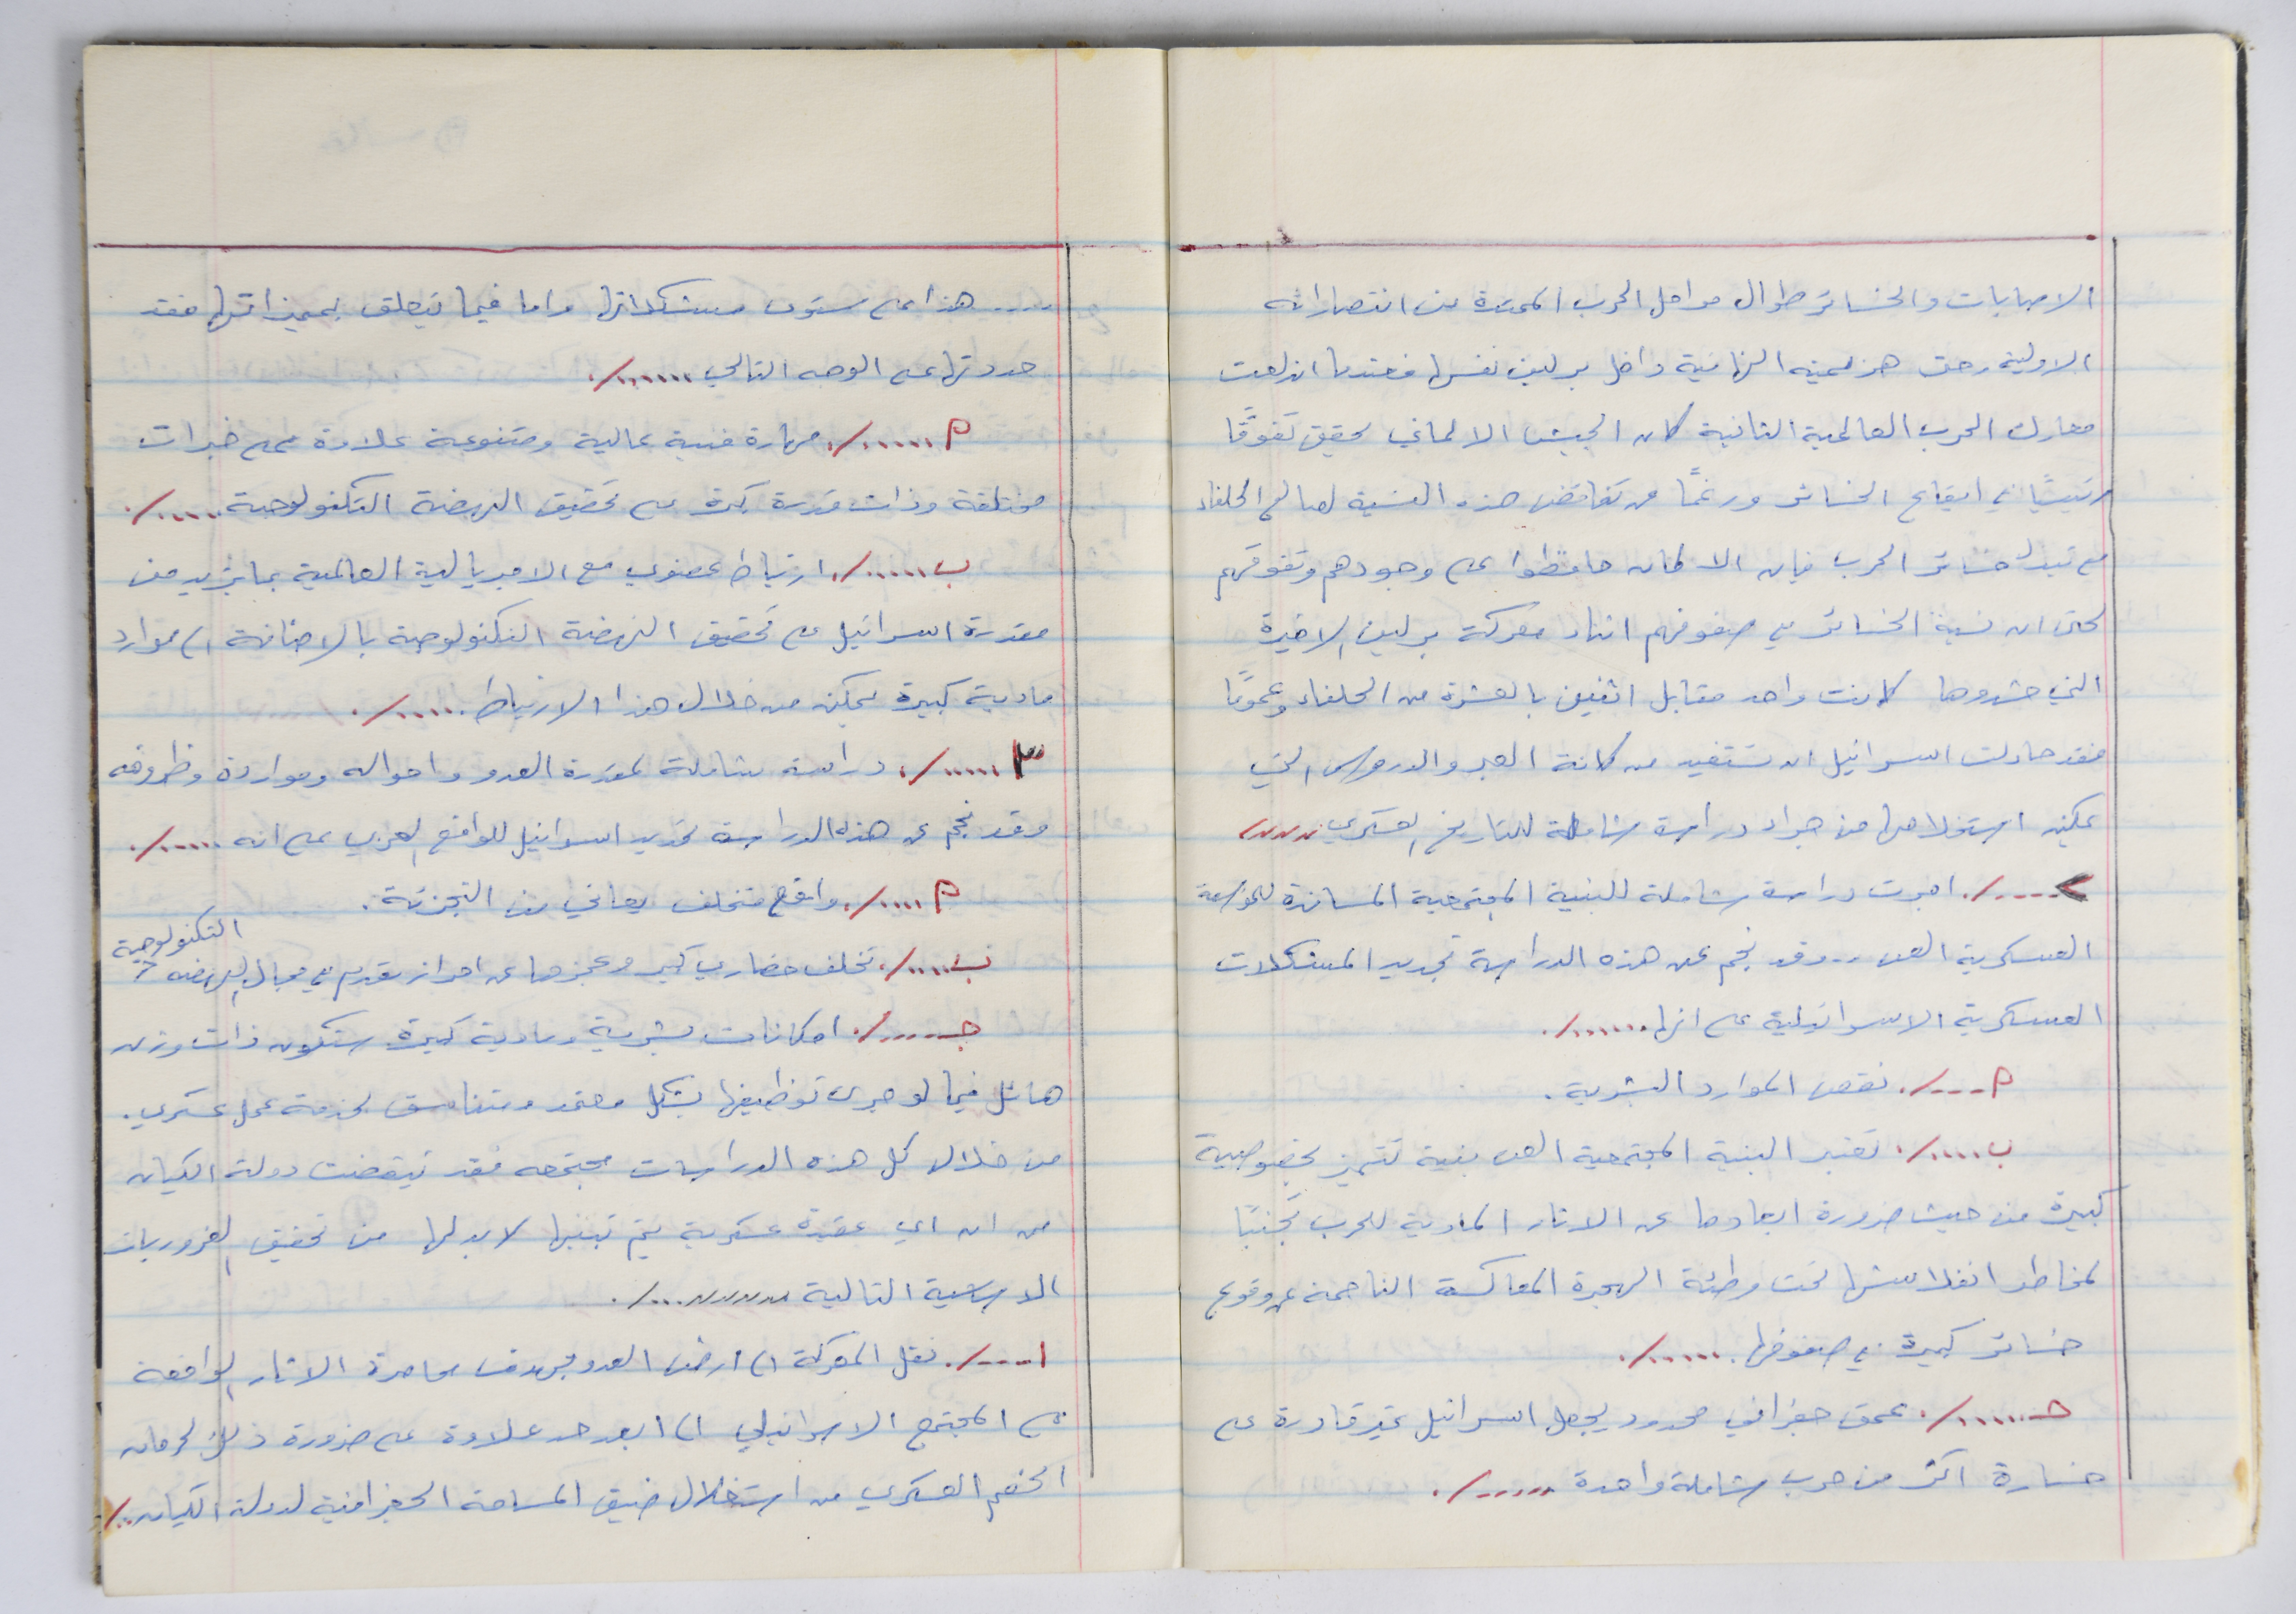 الاصابات والخسائر طوال مراحل الحرب الممتدة من انتصاراته
الاولية وحتى هزيمته النهائية داخل برلين نفسها فعندما اندلعت
معارك الحرب العالمية الثانية كان الجيش الالماني يحقق تفوقًا
في ايقاع الخسائر ورغمًا من تفاقض هذه النسبة لصالح الحلفاء
مع تبدل خسائر الحرب فإن الالمان حافظوا على وجودهم وتفوقهم
حتى ان نسبة الخسائر في صفوفهم اثناء معركة برلين الاخيرة
التي خسروها كانت واحد مقابل اثنين بالعشرة من الحلفاء وعمومًا
فقد حاولت اسرائيل ان تستفيد من كافة العبر والدروس التي
يمكن استخلاصها من جراء دراسة شاملة للتاريخ العسكري
٢ ...../. اجرت دراسة شاملة للبنية المجتمعية المساندة للمؤسسة
العسكرية العب .. وقد نجم عن هذه الدراسة تحديد المشكلات
العسكرية الاسرائيلية على انها ....../.
م ..../. نقص الموارد البشرية .
ب ...../. تعتبر البنية المجتمعية العب بنية تتميز بخصوصية
كبيرة من حيث ضرورة ابعادها عن الاثار المادية للحرب تجنبًا
لمخاطر انفلاشها تحت وطئة الهجرة المعاكسة الناجمة عن وقوع
خسائر كبيرة في صفوفها ....../.
جـ ....../. عمق جغرافي محدود يجعل اسرائيل غير قادرة على
خسارة اكثر من حرب شاملة واحدة ...../.
..... هذا على مستوى مشكلاتها واما فيما يتعلق بمميزاتها فقد
حددتها على الوجه التالي ....../.
م ....../. مهارة فنية عالية ومتنوعة علاوة على خبرات
مختلفة وذات قدرة كبيرة على تحقيق النهضة التكنولوجية ...../.
ب ....../. ارتباط عضوي مع الامبريالية العالمية بما يزيد من
مقدرة اسرائيل على تحقيق النهضة التكنولوجية بالاضافة الى موارد
مادية كبيرة يمكن من خلال هذا الارتباط ...../.
٣ ....../. دراسة شاملة لمقدرة العدو واحواله وموارده وظروفه
وقد نجم عن هذه الدراسة تحديد اسرائيل للواقع العربي على انه ....../.
م ...../. واقع متخلف يعاني من التجزئة .
ب ...../. تخلف حضاري كبير وعجزها عن احراز تقدم في مجال النهضة التكنولوجية
جـ ...../. امكانات بشرية ومادية كبيرة ستكون ذات وزن
هائل فيما لو جرى توظيفها بشكل معتمد ومتناسق لخدمة عمل عسكري .
من خلال كل هذه الدراسات مجتمعه فقد تيقضت دولة الكيان
من ان اي عقيدة عسكرية يتم تبنيها لابد لها من تحقيق الضروريات
الاساسية التالية ......../.
١ ..../. نقل المعركة الى ارض العدو بهدف محاصرة الاثار الواقعة
على المجتمع الاسرائيلي الى ابعد حد علاوة على ضرورة ذلك لحرمان
الخصم العسكري من استغلال ضيق المساحة الجغرافية لدولة الكيان ../.